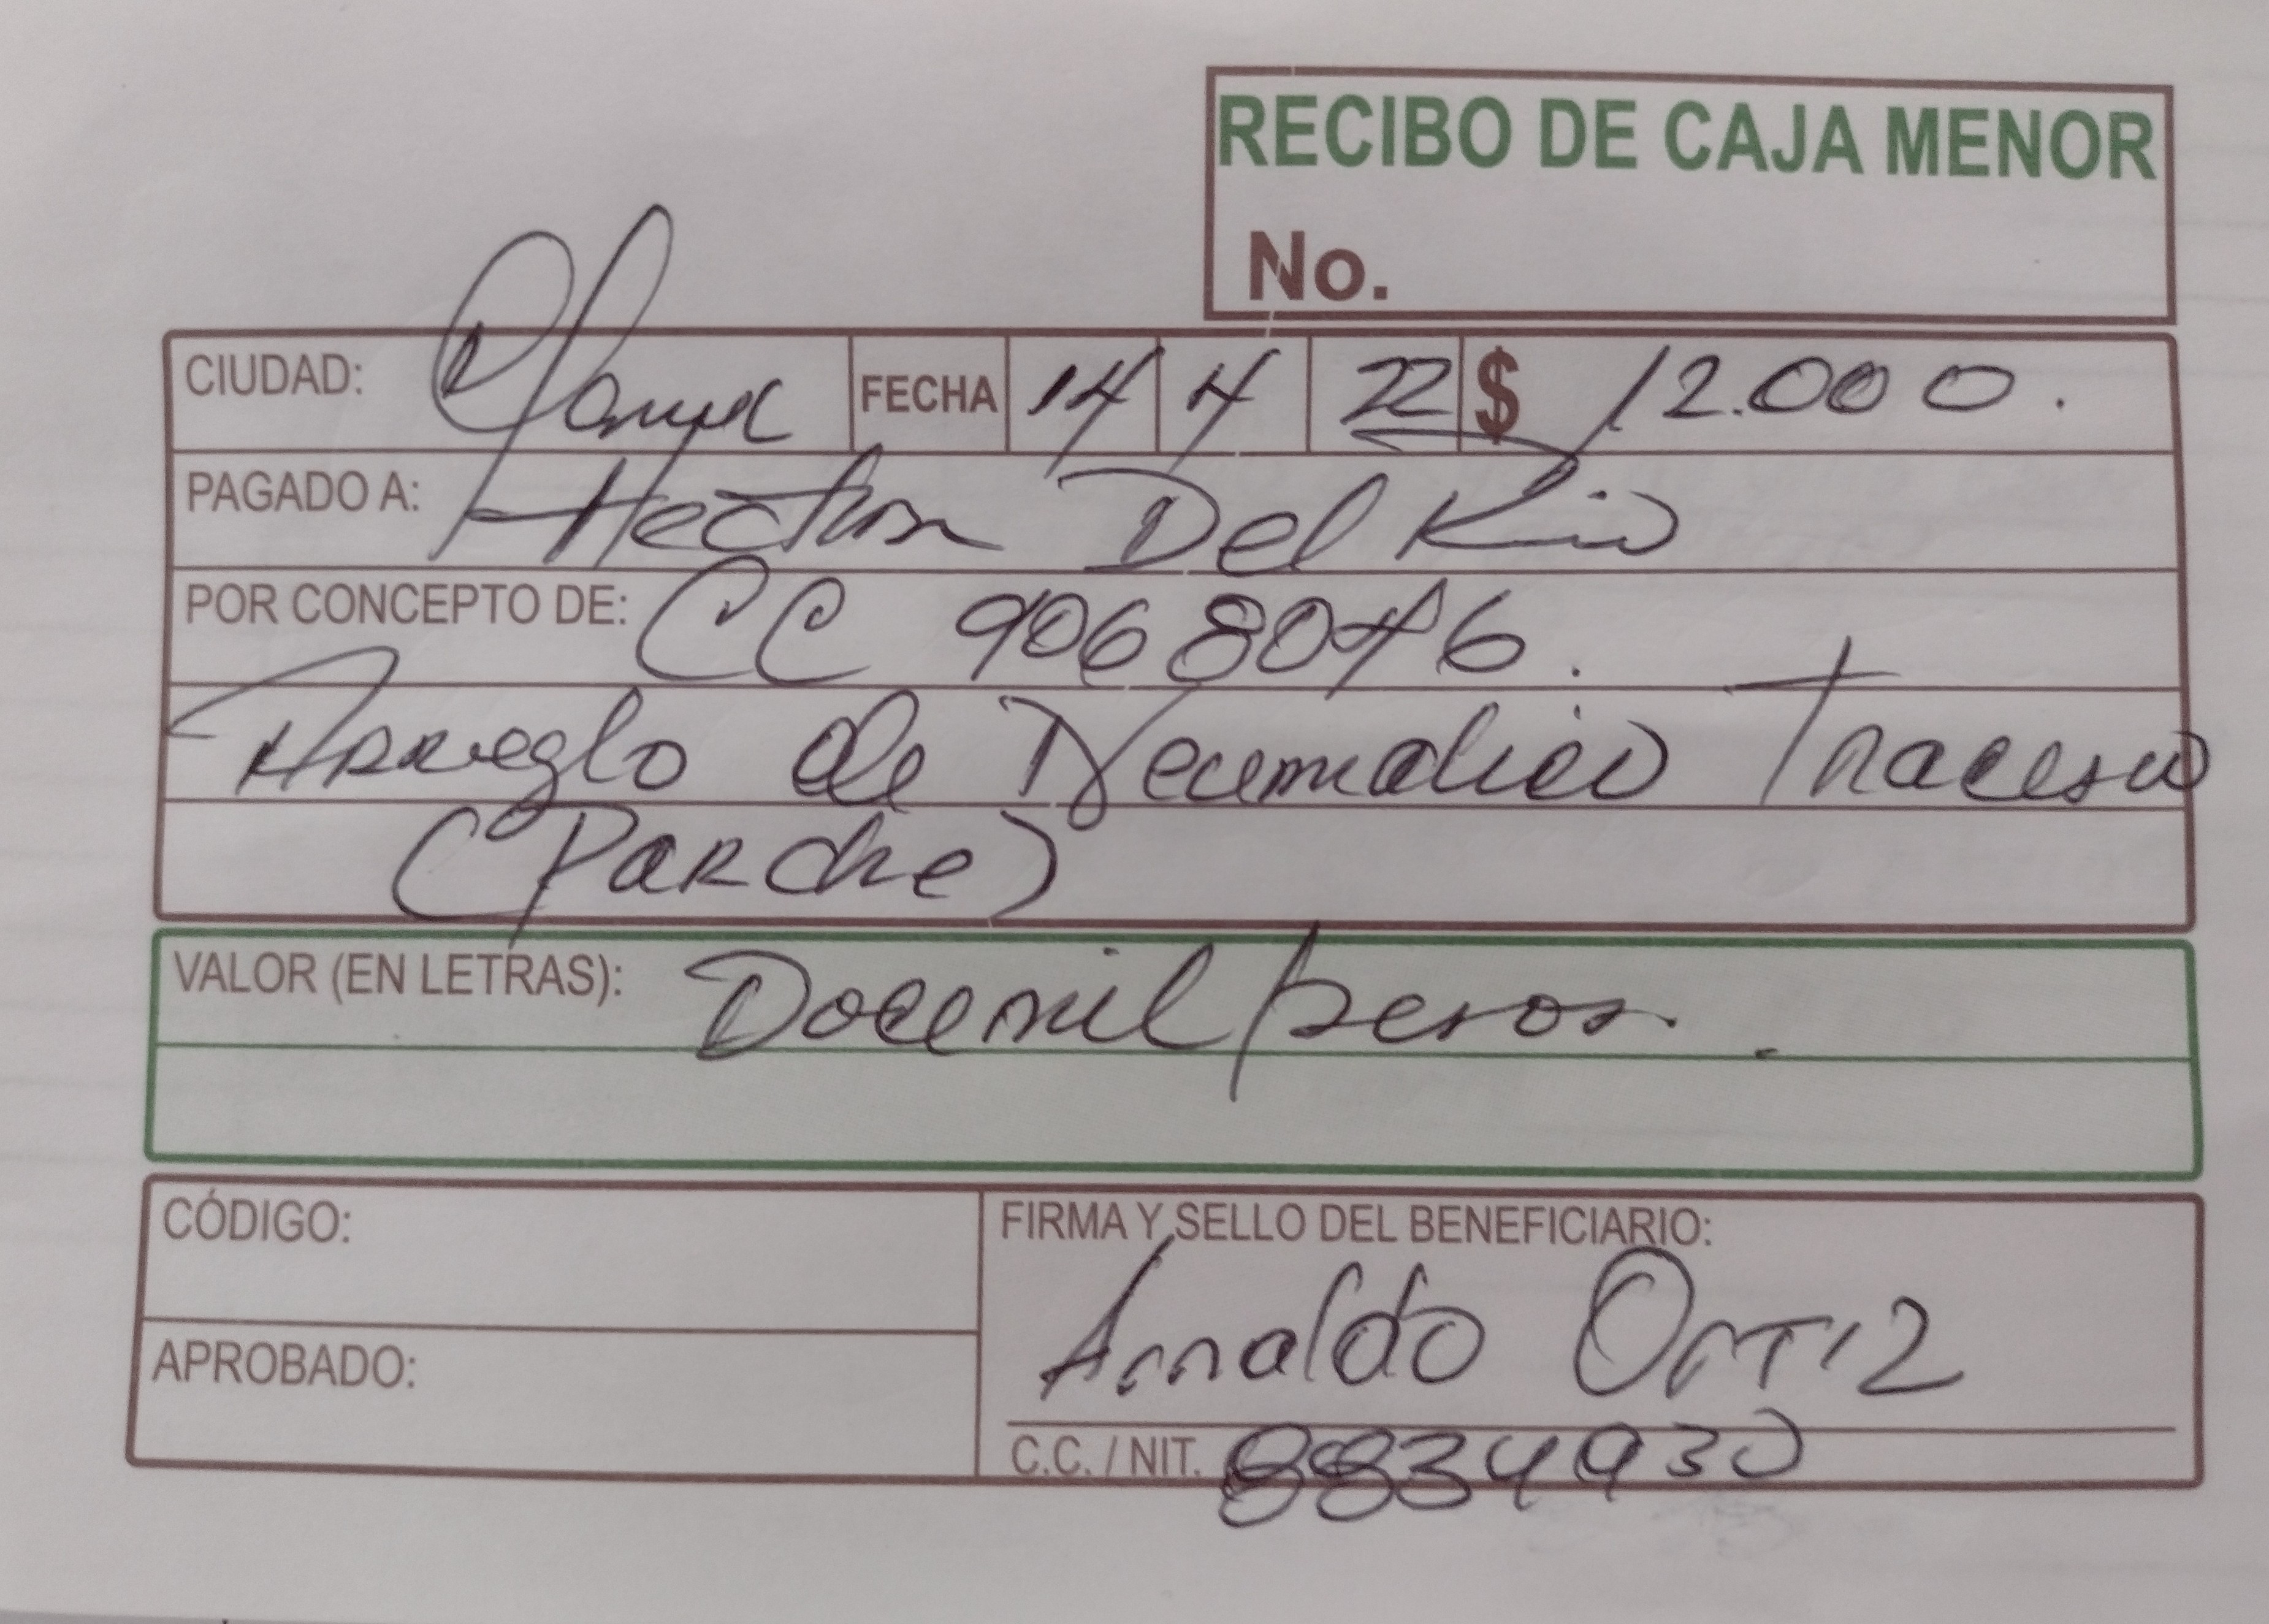 RECIBO DE CAJA MENOR
No.
CIUDAD: FECHA 14 4 22 $ 12.000.
PAGADO A: Hector Del Rio
POR CONCEPTO DE: CC
Arreglo de Neumatico Tracero
(Parche)
VALOR (EN LETRAS): Docemil pesos.
CÓDIGO:
FIRMA Y SELLO DEL BENEFICIARIO:
Arnaldo Ortiz
APROBADO:
C.C. / NIT. 8834930